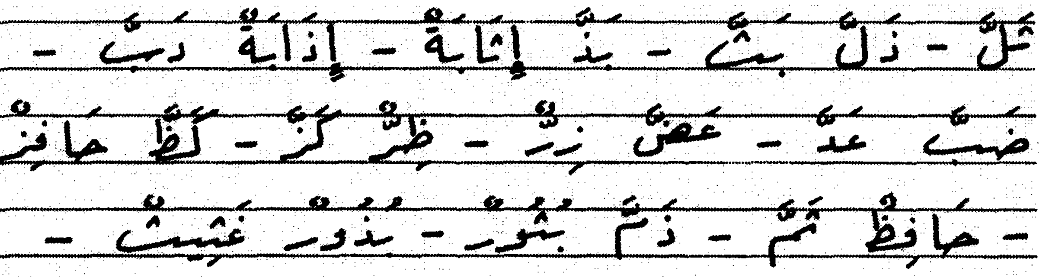 ثَلَّ - ذَلَّ بَثَّ - بَذَّ إِثَابَةٌ - إِذَابَةٌ دَبَّ -
ضَبَّ عَدَّ - عَضَّ زِرٌّ - ظِرٌّ كَزَّ - كَظَّ حَافِزْ
- حَافِظْ ثَمَّ - ذَمَّ بُثُورْ - بُذُورْ غَثِيثْ -